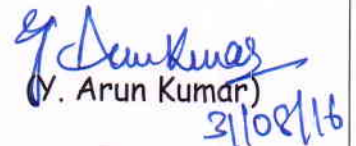 Y. Arun Kumar
(Y. Arun Kumar)
31/08/16